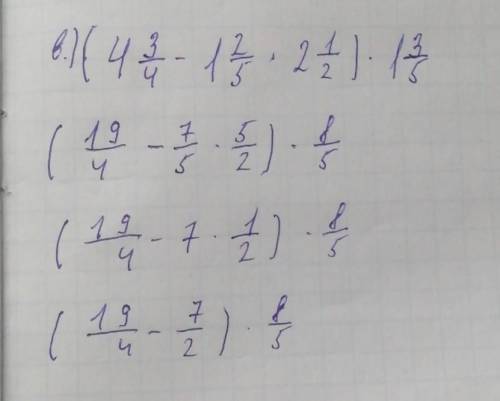 в.) ( 4 3/4 - 1 2/5 · 2 1/2 ) · 1 3/5
( 19/4 - 7/5 · 5/2 ) · 8/5
( 19/4 - 7 · 1/2 ) · 8/5
( 19/4 - 7/2 ) · 8/5